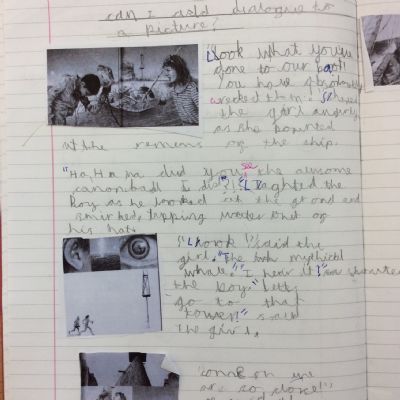 can I add dialogue to
a picture?
"Look what you've
done to our boat!
You have absolutely
wrecked them." Shouted
the girl angerly
as she pointed
at the remens of the ship.
"Ha, Ha ha did you see the awsome
canonball I did?!" Laghted the
Boy as he looked at the grond and
smirked, tipping water out of
his hat.
"Look!" said the
girl. "The mythical
whale." "I hear it!" shouted
the boy. "Lets
go to that
tower!" said
the girl.
"come on we
are so close!"